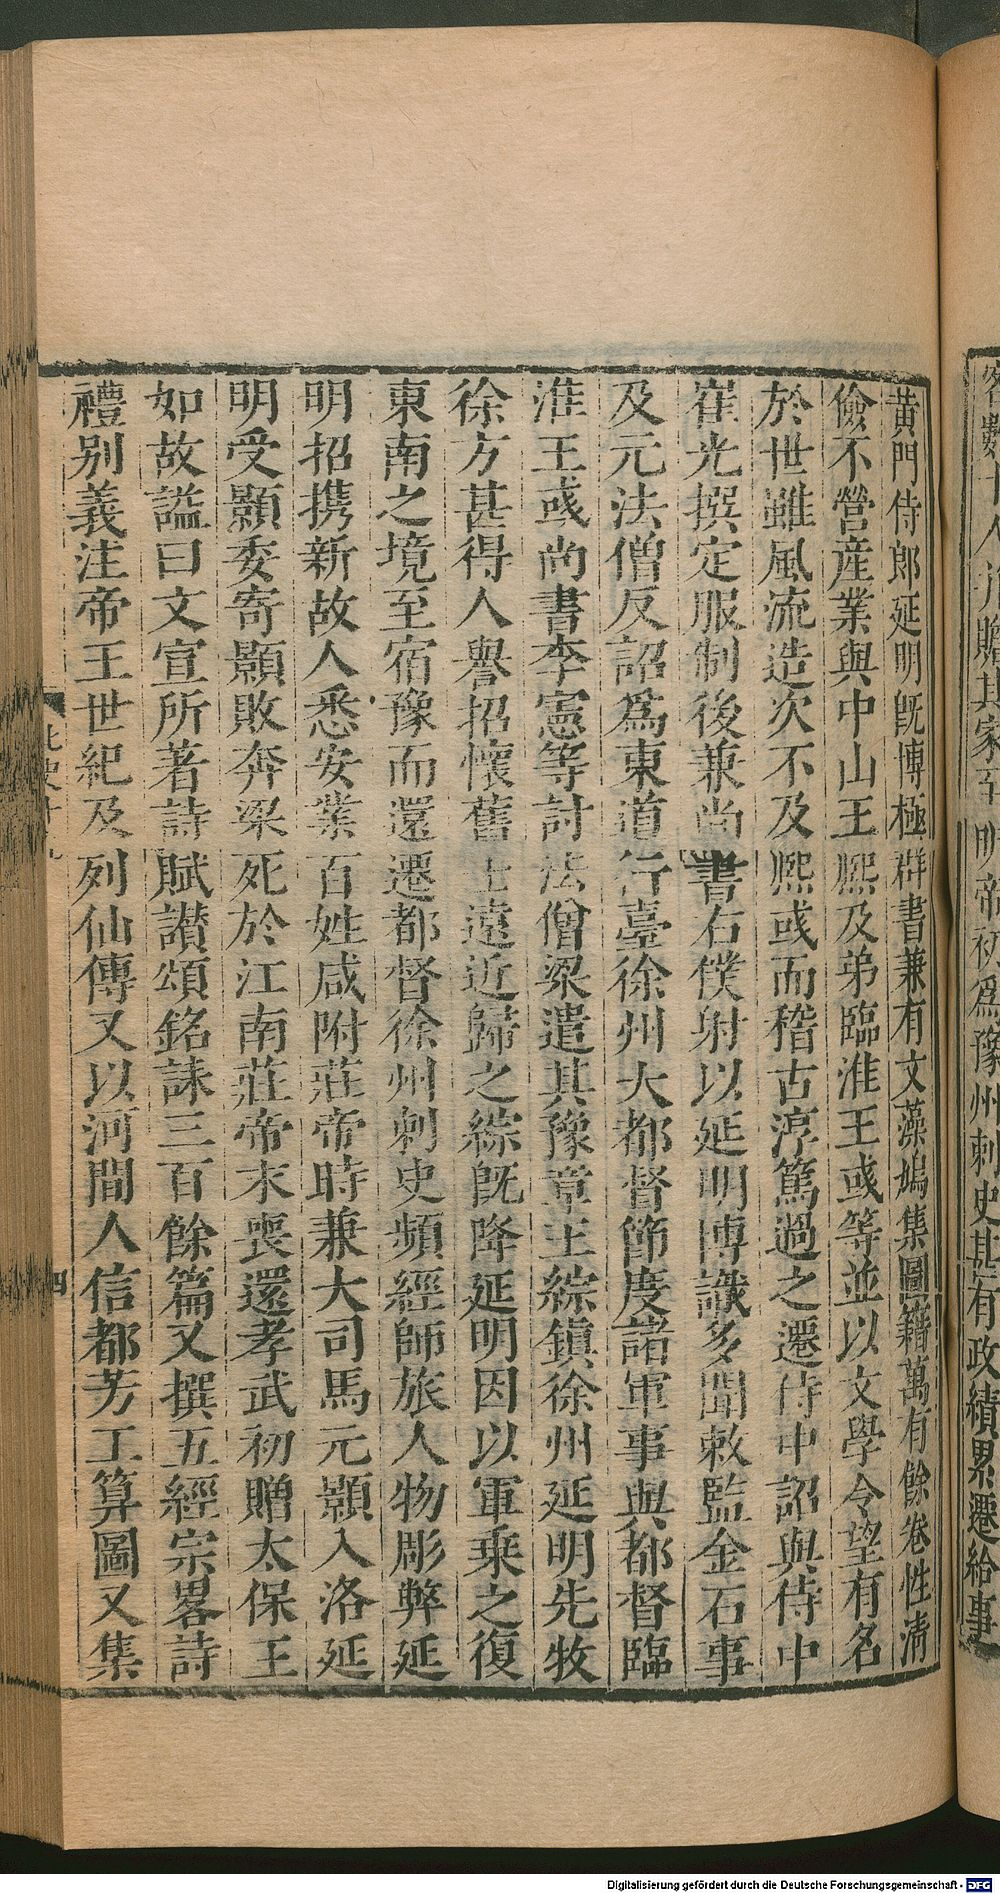 黄門侍郎延明旣博極群書兼有文藻鳩集圖籍萬有餘卷性淸
儉不營産業與中山王熙及弟臨淮王彧等並以文學令望有名
於世雖風流造次不及熙彧而稽古淳篤過之遷侍中詔與侍中
崔光撰定服制後兼尚書右僕射以延明博識多聞敕監金石事
及元法僧反詔爲東道行臺徐州大都督節度諸軍事與都督臨
淮王彧尚書李憲等討法僧梁遣其豫章王綜鎮徐州延明先牧
徐方甚得人譽招懷舊土遠近歸之綜旣降延明因以軍乗之復
東南之境至宿豫而還遷都督徐州刺史頻經師旅人物彫弊延
明招携新故人悉安業百姓咸附莊帝時兼大司馬元顥入洛延
明受顥委寄顥敗奔梁死於江南莊帝末喪還孝武初贈太保王
如故謚曰文宣所著詩賦讃頌銘誄三百餘篇又撰五經宗畧詩
禮别義注帝王世紀及列仙傳又以河間人信都芳工算圖又集
四
人 贍其家至明帝初爲豫州刺史甚有政績累遷給事
Digitalisierung gefördert durch die Deutsche Forschungsgemeinschaft - DFG